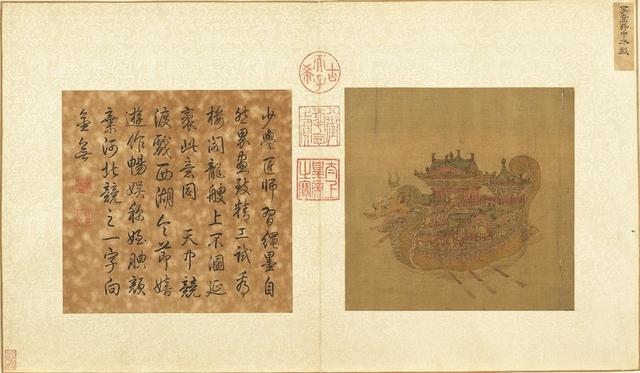 宋李嵩天中水戲
古希天子
八徵耄念之寶
太上皇帝之寶
少學匠師習繩墨自
然界畫致精工試看
樓閣龍艘上不溷延
袤此意同 天中競
渡戲西湖令節嬉
遊作暢娛稱姪腆顏
棄河北競之一字向
金無